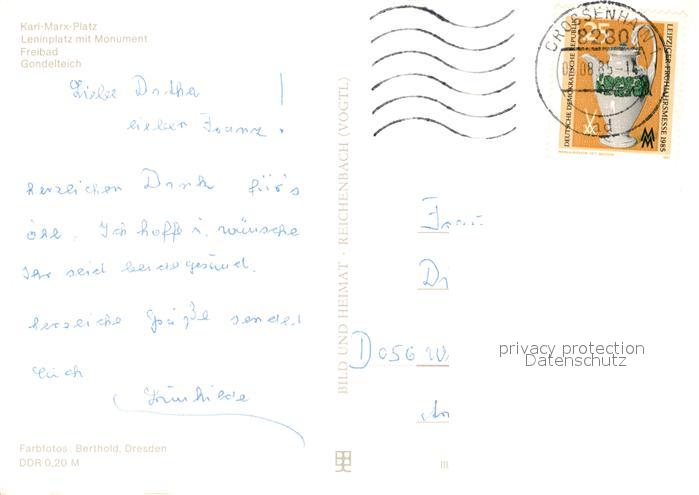 Karl-Marx-Platz
Leninplatz mit Monument
Freibad
Gondelteich
Liebe Dotha !
lieber Franz !
herzlichen Dank für's
öhl. Ich hoffe u. wünsche
Ihr seid beide gesund.
herzliche Grüße sendet
Euch
Farbfotos: Berthold, Dresden
DDR 0,20 M
BILD UND HEIMAT · REICHENBACH (VOGTL)
III
GROSSENHAIN
8280
08.85-14
25
DEUTSCHE DEMOKRATISCHE REPUBLIK
LEIPZIGER FRÜHJAHRSMESSE 1985
Di
privacy protection
Datenschutz